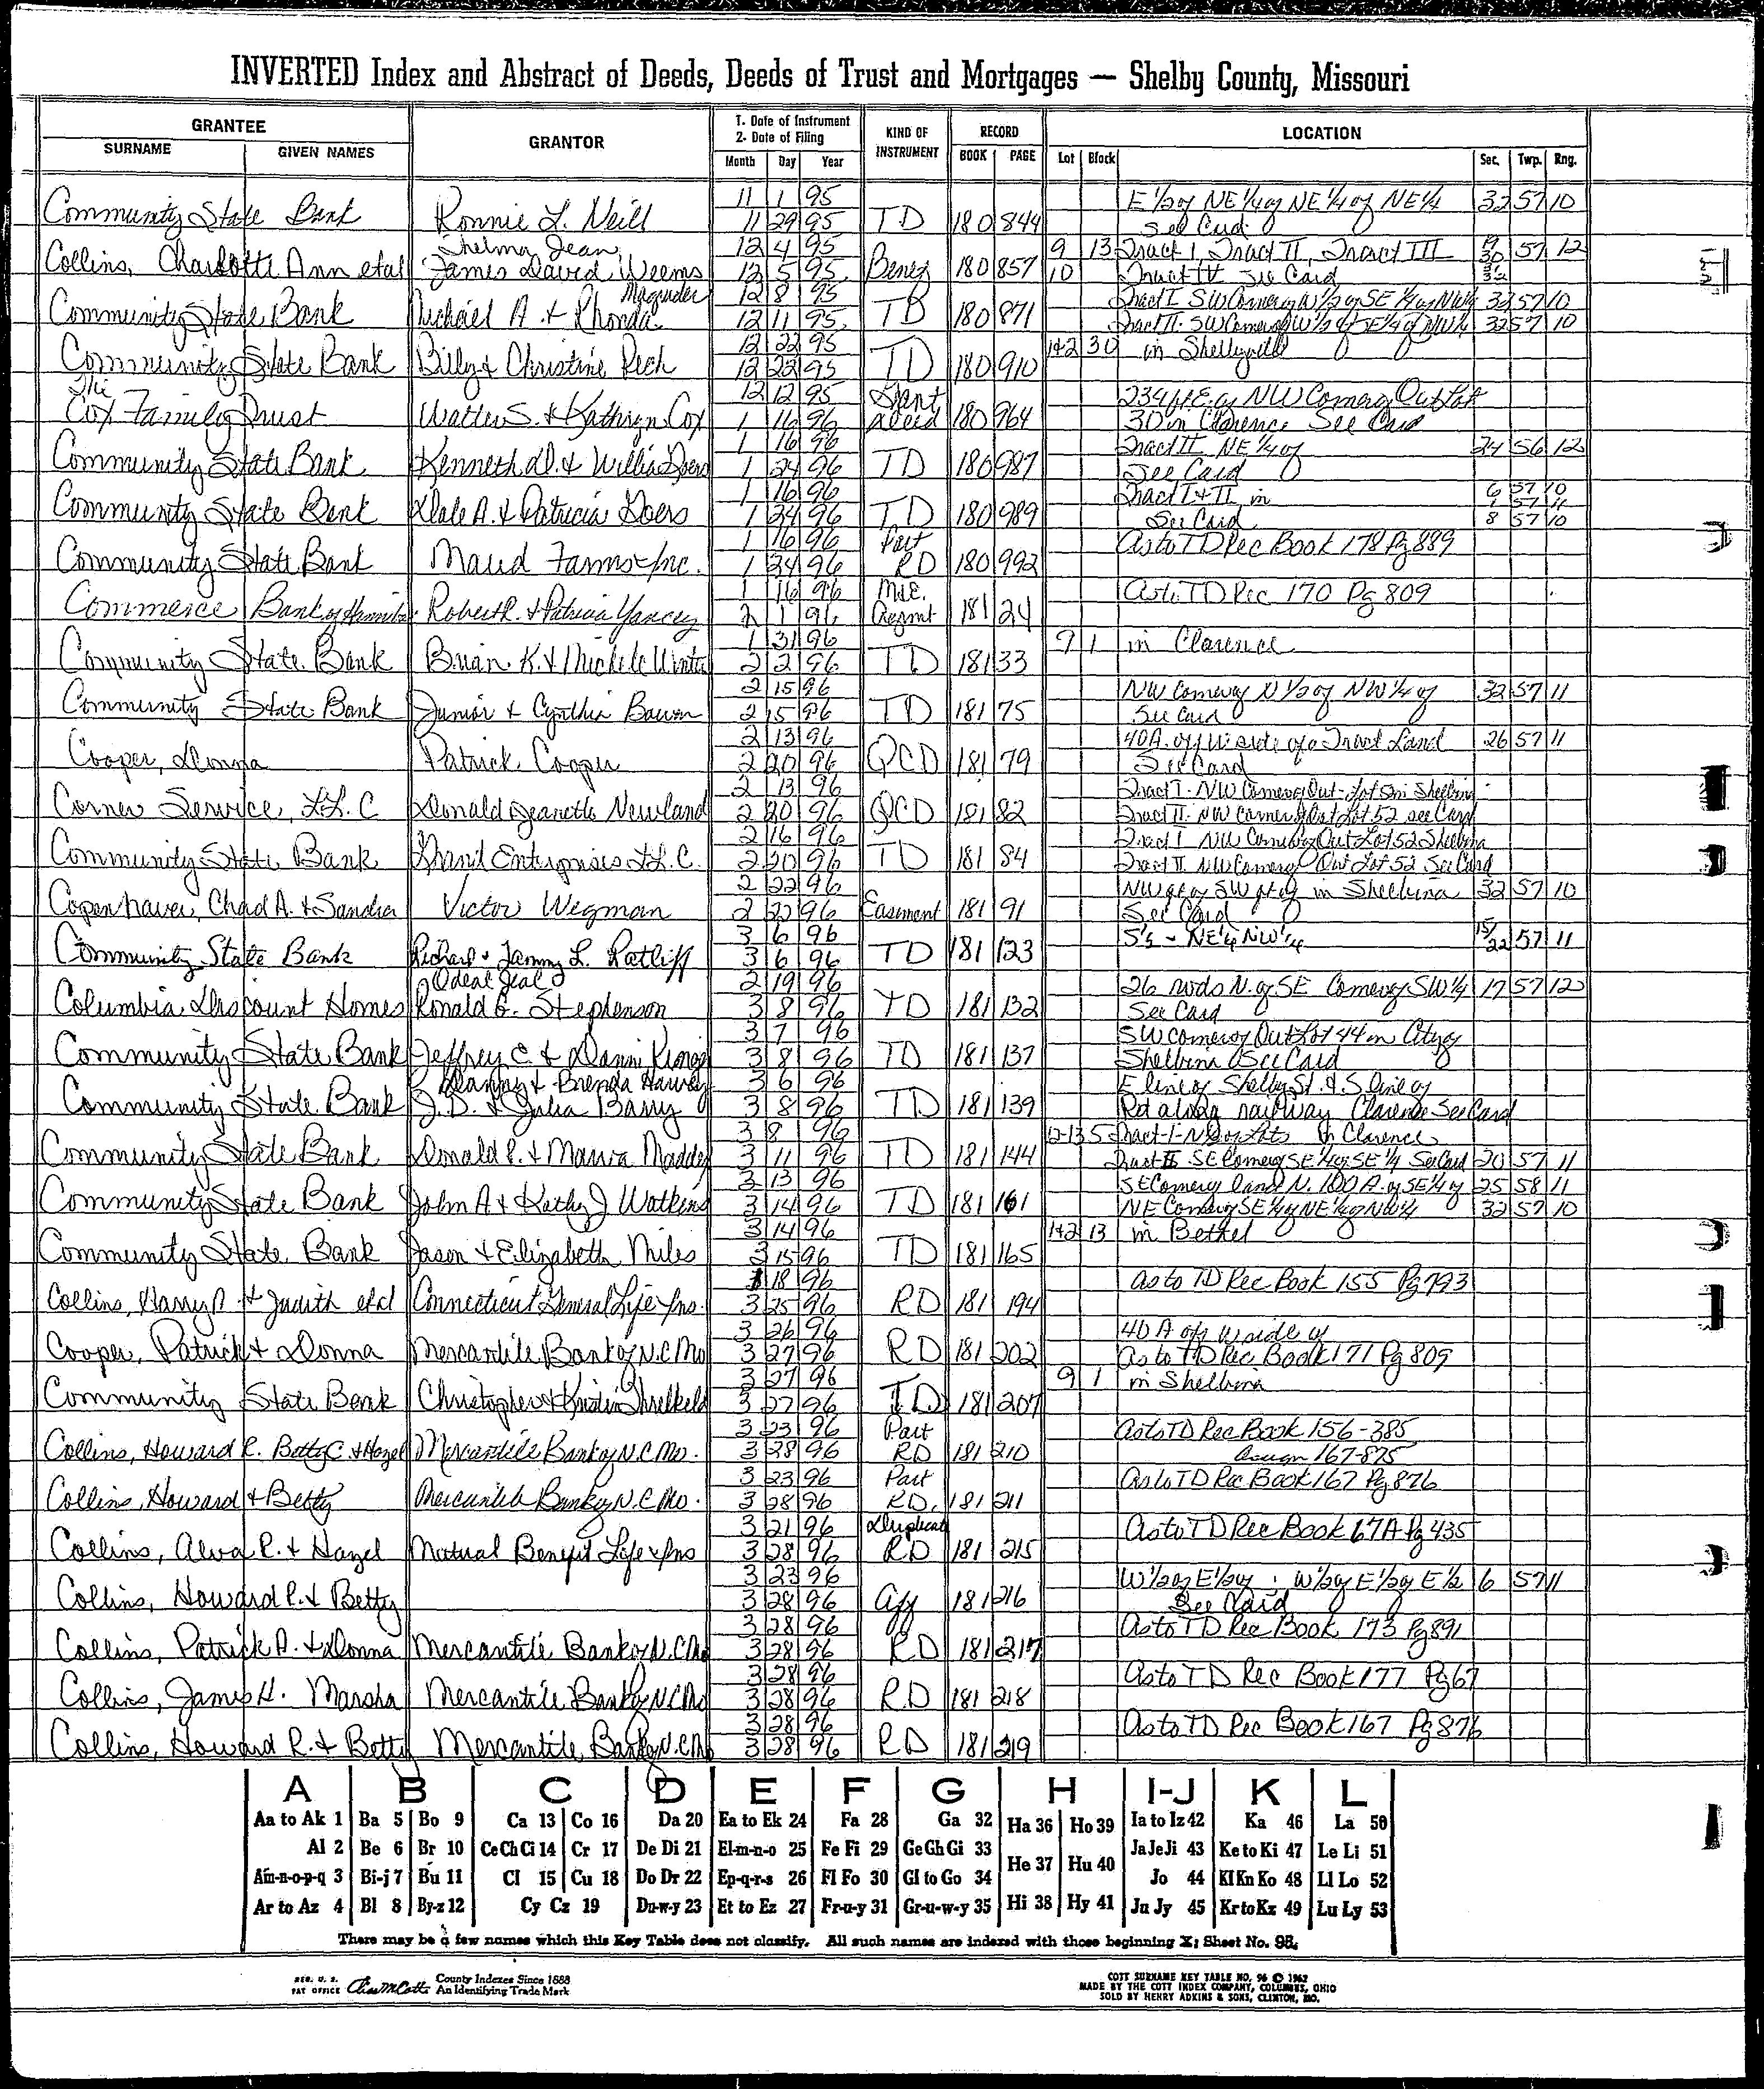 INVERTED Index and Abstract of Deeds, Deeds of Trust and Mortgages — Shelby County, Missouri
GRANTEE GRANTOR 1. Date of Instrument 2. Date of Filing KIND OF INSTRUMENT RECORD LOCATION
SURNAME GIVEN NAMES Month Day Year BOOK PAGE Lot Block Sec. Twp. Rng.
11 1 95 E 1/2 of NE 1/4 of NE 1/4 of NE 1/4 32 57 10
Community State Bank Ronnie L. Neill 11 29 95 TD 180 844 See Card
Thelma Jean 12 4 95 9 13 Tract I, Tract II, Tract III 57 12
Collins, Charlotte Ann etal James David Weems 12 5 95 Benef 180 857 10 Tract IV See Card
Magruder 12 8 95 Tract I SW Corner of W 1/2 of SE 1/4 of NW 1/4 32 57 10
Community State Bank Michael A. & Rhonda 12 11 95 TD 180 871 Tract II. SW Corner of W 1/2 of SE 1/4 of NW 1/4 32 57 10
12 22 95 1+2 30 in Shelbyville
Community State Bank Billy & Christine Rech 12 22 95 TD 180 910
The 12 12 95 234 ft E. of NW Corner of Out Lot
Cox Family Trust Walter S. & Kathryn Cox 1 16 96 Deed 180 964 30 in Clarence See Card
1 16 96 Tract II NE 1/4 of 24 56 12
Community State Bank Kenneth D. & Willia Doers 1 24 96 TD 180 987 See Card
1 16 96 Tract I & II in 6 57 10
57 11
Community State Bank Dale A. & Patricia Doers 1 24 96 TD 180 989 See Card 8 57 10
1 16 96 Part As to TD Rec Book 178 Pg 889
Community State Bank Maud Farms Inc. 1 24 96 RD 180 992
1 16 96 As to TD Rec 170 Pg 809
Commerce Bank of Robert R. & Patricia Yancey 2 1 96 Agrmt 181 24
1 31 96 9 1 in Clarence
Community State Bank Brian K. & Michele Winter 2 2 96 TD 181 33
2 15 96 NW Corner of N 1/2 of NW 1/4 of 32 57 11
Community State Bank Junior & Cynthia Bowen 2 15 96 TD 181 75 See Card
2 13 96 40 A. off W. side of a Tract Land 26 57 11
Cooper, Donna Patrick Cooper 2 20 96 QCD 181 79 See Card
2 13 96 Tract I. NW Corner of Out-Lot in Shelbina
Corner Service, L.L.C Donald Jeanette Newland 2 20 96 QCD 181 82 Tract II. NW Corner of Out Lot 52 see Card
2 16 96 Tract I NW Corner of Out Lot 52 Shelbina
Community State Bank Enterprises L.L.C. 2 20 96 TD 181 84 Tract II NW Corner of Out Lot 52 See Card
2 22 96 NW qt of SW qt of in Shelbina 32 57 10
Copenhaver, Chad A. & Sandra Victor Wegman 2 22 96 Easment 181 91 See Card
3 6 96 S 1/2 - NE 1/4 NW 1/4 15/22 57 11
Community State Bank Richard & Tammy L. Ratliff 3 6 96 TD 181 123
Odeal Jeal 2 19 96 26 rods N. of SE Corner of SW 1/4 17 57 12
Columbia Discount Homes Ronald G. Stephenson 3 8 96 TD 181 132 See Card
3 7 96 SW corner of Out Lot 44 in City of
Community State Bank Jeffrey C & Danni 3 8 96 TD 181 137 Shelbina See Card
Danny & Brenda 3 6 96 E line of Shelby St. & S line of
Community State Bank J. D. & Julia Barry 3 8 96 TD 181 139 Rd along railway Clarence See Card
3 8 96 12-13 5 Tract-I-N of Lots in Clarence
Community State Bank Donald R. & Maura Maddy 3 11 96 TD 181 144 Tract II SE Corner of SE 1/4 of SE 1/4 See Card 20 57 11
3 13 96 SE Corner land N. 100 A. of SE 1/4 of 25 58 11
Community State Bank John A & Kathy J Watkins 3 14 96 TD 181 161 NE Corner of SE 1/4 of NE 1/4 of NW 1/4 32 57 10
3 14 96 1+2 13 in Bethel
Community State Bank Jason & Elizabeth Miles 3 15 96 TD 181 165
18 96 As to TD Rec Book 155 Pg 793
Collins, Harry D. & Judith etal Connecticut General Life Ins. 3 25 96 RD 181 194
3 26 96 40 A off W side of
Cooper, Patrick & Donna Mercantile Bank of N.C. Mo 3 27 96 RD 181 202 As to TD Rec. Book 171 Pg 809
3 27 96 9 1 in Shelbina
Community State Bank Christopher & Kristin Threlkeld 3 27 96 TD 181 207
3 23 96 Part As to TD Rec Book 156-385
Collins, Howard R. Betty C & Hazel Mercantile Bank of N.C. Mo. 3 28 96 RD 181 210 Assign 167-875
3 23 96 Part As to TD Rec Book 167 Pg 876
Collins, Howard & Betty Mercantile Bank of N.C. Mo. 3 28 96 RD. 181 211
3 21 96 Duplicat As to TD Rec Book 67A Pg 435
Collins, Alva R. & Hazel Mutual Benefit Life Ins 3 28 96 RD 181 215
3 23 96 W 1/2 of E 1/2 of W 1/2 of E 1/2 of E 1/2 6 57 11
Collins, Howard R. & Betty 3 28 96 Aff 181 216 See Card
3 28 96 As to TD Rec Book 173 Pg 891
Collins, Patrick A. & Donna Mercantile Bank of N.C. Mo 3 28 96 RD 181 217
3 28 96 As to TD Rec Book 177 Pg 67
Collins, James H. Marsha Mercantile Bank of N.C. Mo 3 28 96 RD 181 218
3 28 96 As to TD Rec Book 167 Pg 876
Collins, Howard R. & Betty Mercantile Bank of N.C. Mo 3 28 96 RD 181 219
A B C D E F G H I-J K L
Aa to Ak 1 Ba 5 Bo 9 Ca 13 Co 16 Da 20 Ea to Ek 24 Fa 28 Ga 32 Ha 36 Ho 39 Ia to Iz 42 Ka 46 La 50
Al 2 Be 6 Br 10 Ce Ch Ci 14 Cr 17 De Di 21 El-m-n-o 25 Fe Fi 29 Ge Gh Gi 33 He 37 Hu 40 Ja Je Ji 43 Ke to Ki 47 Le Li 51
Am-n-o-p-q 3 Bi-j 7 Bu 11 Cl 15 Cu 18 Do Dr 22 Ep-q-r-s 26 Fl Fo 30 Gl to Go 34 Jo 44 Kl Kn Ko 48 Ll Lo 52
Ar to Az 4 Bl 8 By-z 12 Cy Cz 19 Du-w-y 23 Et to Ez 27 Fr-u-y 31 Gr-u-w-y 35 Hi 38 Hy 41 Ju Jy 45 Kr to Kz 49 Lu Ly 53
There may be a few names which this Key Table does not classify. All such names are indexed with those beginning X; Sheet No. 98.
REG. U. S. PAT OFFICE County Indexes Since 1888 An Identifying Trade Mark
COTT SURNAME KEY TABLE NO. 96 © 1962
MADE BY THE COTT INDEX COMPANY, COLUMBUS, OHIO
SOLD BY HENRY ADKINS & SONS, CLINTON, MO.